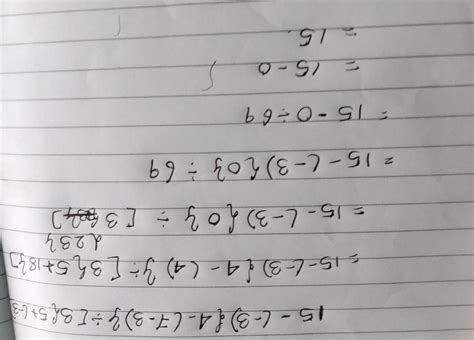 15 - (-3) {4 - (7-3)} ÷ [3{5+(-3
= 15 - (-3) {4 - (4) } ÷ [3{5+18}]
= 15 - (-3) {0} ÷ [3{23}]
= 15 - (-3) {0} ÷ 69
= 15 - 0 ÷ 69
= 15 - 0
= 15.